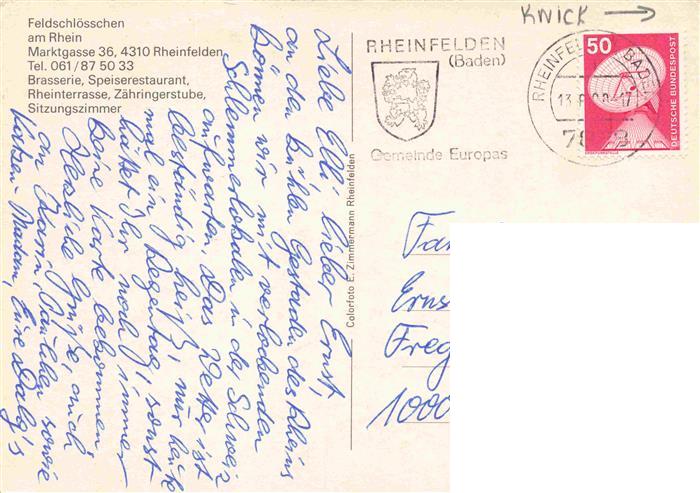 Feldschlösschen
am Rhein
Marktgasse 36, 4310 Rheinfelden
Tel. 061/87 50 33
Brasserie, Speiserestaurant,
Rheinterrasse, Zähringerstube,
Sitzungszimmer
Liebe Elli, lieber Ernst,
an den kühlen Gestaden des Rheins
können wir mit verlockenden
Schlemmerlokalen in der Schweiz
aufwarten. Das Wetter ist
beständig heiß, nur heute
mal ein Regentag, sonst
hättet Ihr noch immer
keine Karte bekommen.
Herzliche Grüße, auch
an Karin, sowie
Katzen Madam, Eure
Colorfoto E. Zimmermann Rheinfelden
KNICK →
RHEINFELDEN
(Baden)
Gemeinde Europas
RHEINFELDEN BADEN
13
50
DEUTSCHE BUNDESPOST
Fam
Erns
Freg
1000